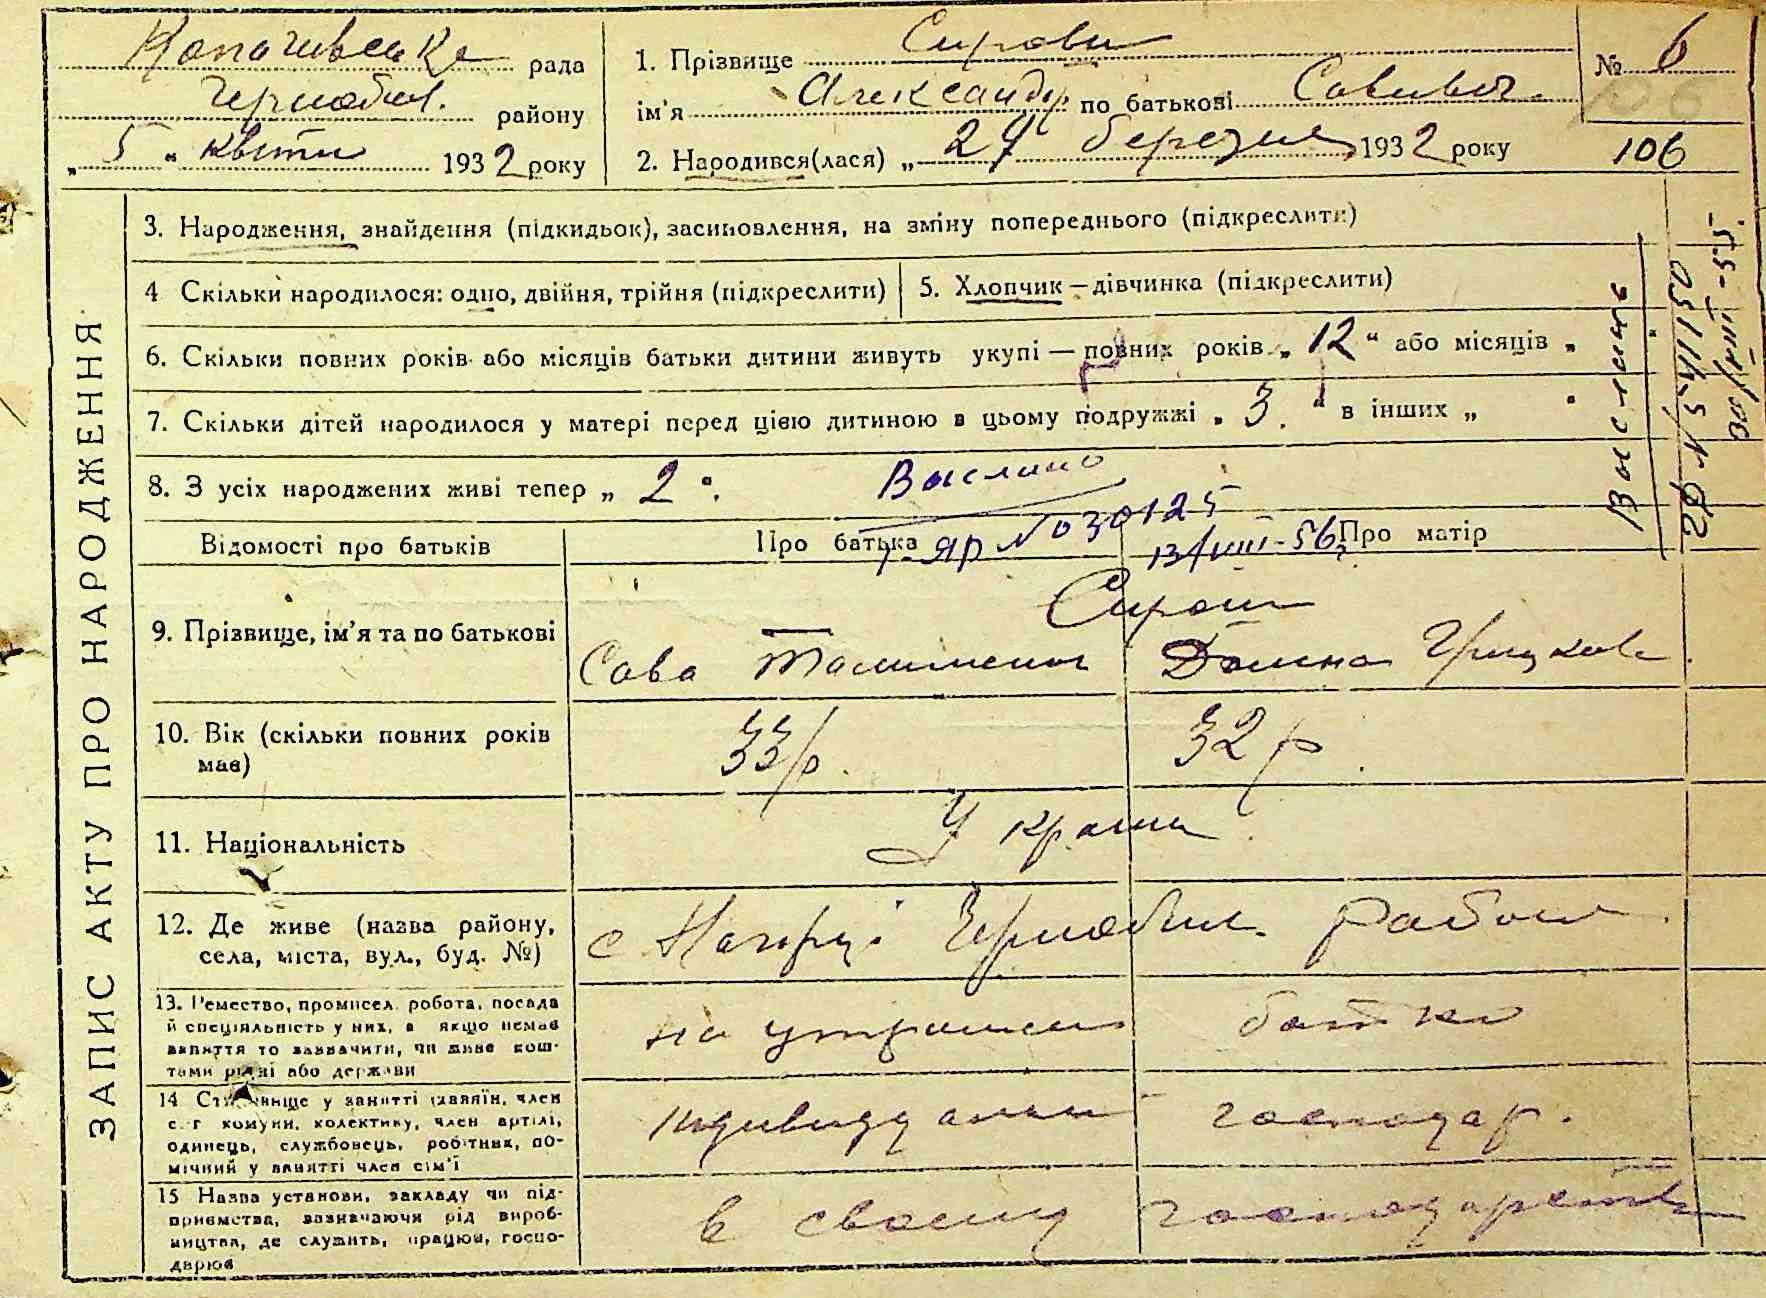 Копачівська рада
Чернобил. району
„ 5 “ квітня 1932 року
1. Прізвище
ім'я Александр по батькові Савивич.
2. Народився(лася) „ 27 березня 1932 року
№ 6
106
106
ЗАПИС АКТУ ПРО НАРОДЖЕННЯ
3. Народження, знайдення (підкидьок), засиновлення, на зміну попереднього (підкреслити)
4 Скільки народилося: одно, двійня, трійня (підкреслити)
5. Хлопчик — дівчинка (підкреслити)
6. Скільки повних років або місяців батьки дитини живуть укупі — повних років „ 12 “ або місяців „ “
7. Скільки дітей народилося у матері перед цією дитиною в цьому подружжі „ 3. “ в інших „ “
8. З усіх народжених живі тепер „ 2 “.
Выслано
яр № 030125
13/VIII-56
Відомості про батьків
Про батька
Про матір
9. Прізвище, ім'я та по батькові
Сава
10. Вік (скільки повних років має)
33 р.
32 р.
11. Національність
Україн
12. Де живе (назва району, села, міста, вул., буд. №)
с Нагорці Чернобил. району
13. Ремество, промисел, робота, посада
й спеціяльність у них, а якщо немає
заняття то зазначити, чи живе кош-
тами рідні або держави
на утриман батька
14 Становище у занятті (хазяїн, член
с.-г комуни, колективу, член артілі,
одинець, службовець, робітник, по-
мічний у занятті член сім'ї
індивидуальн господар.
15 Назва установи, закладу чи під-
приємства, зазначаючи рід вироб-
ництва, де служить, працює, госпо-
дарює
в своєму господарстві